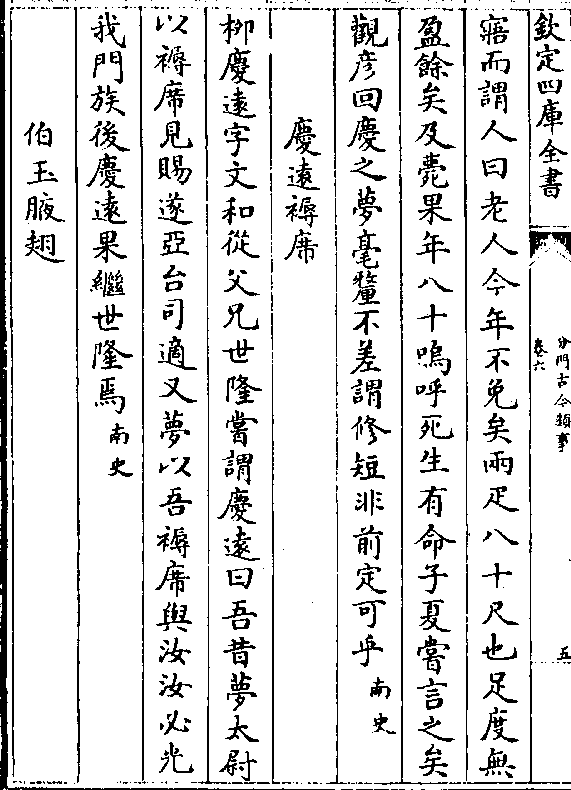 欽定四庫全書
分門古今類事
卷六
五
寤而謂人曰老人今年不免矣兩疋八十尺也足度無
盈餘矣及薨果年八十嗚呼死生有命子夏嘗言之矣
觀彦回慶之夢毫釐不差謂修短非前定可乎南史
慶遠褥席
栁慶遠字文和從父兄世隆嘗謂慶遠曰吾昔夢太尉
以褥席見賜遂亞台司適又夢以吾褥席與汝汝必光
我門族後慶遠果繼世隆焉南史
伯玉腋翅